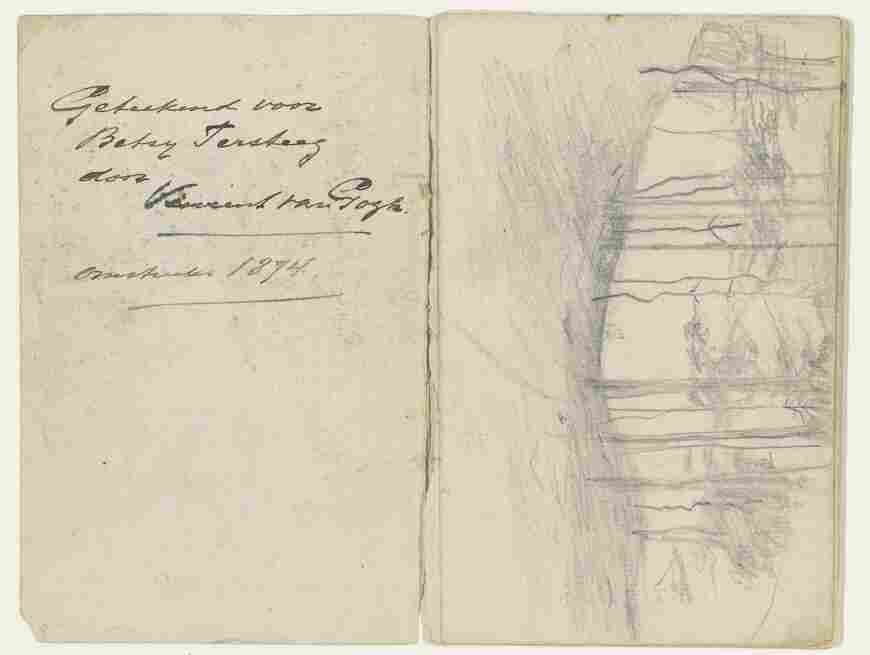 Geteekend voor
Betsy Tersteeg
door
Vincent van Gogh.
omstreeks 1874.